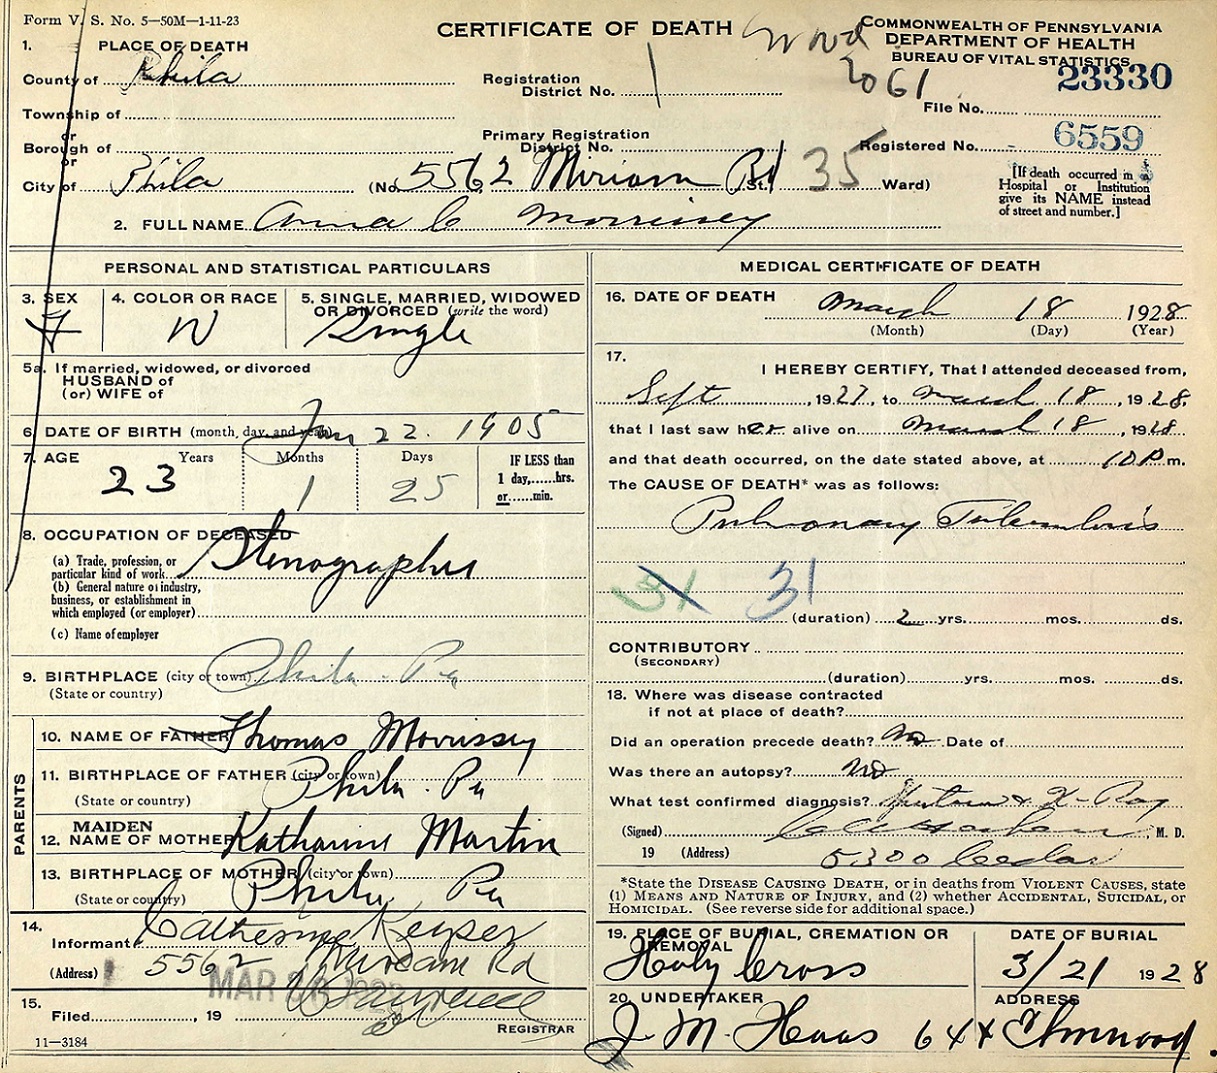 Form V. S. No. 5—50M—1-11-23
CERTIFICATE OF DEATH
COMMONWEALTH OF PENNSYLVANIA
DEPARTMENT OF HEALTH
BUREAU OF VITAL STATISTICS
1. PLACE OF DEATH
County of Phila
Registration District No. 1
2061
23330
File No.
Township of
or
Borough of
or
Primary Registration District No.
Registered No. 6559
City of Phila (No. 5562 Miriam Rd St. 35 Ward)
[If death occurred in a Hospital or Institution give its NAME instead of street and number.]
2. FULL NAME Anna C Morrissey
PERSONAL AND STATISTICAL PARTICULARS
3. SEX F
4. COLOR OR RACE W
5. SINGLE, MARRIED, WIDOWED OR DIVORCED (write the word) Single
5a. If married, widowed, or divorced
HUSBAND of
(or) WIFE of
6. DATE OF BIRTH (month, day, and year) Jan 22. 1905
7. AGE 23 Years 1 Months 25 Days
IF LESS than 1 day,......hrs. or......min.
8. OCCUPATION OF DECEASED
(a) Trade, profession, or particular kind of work Stenographer
(b) General nature of industry, business, or establishment in which employed (or employer)
(c) Name of employer
9. BIRTHPLACE (city or town) Phila. Pa
(State or country)
PARENTS
10. NAME OF FATHER Thomas Morrissey
11. BIRTHPLACE OF FATHER (city or town) Phila. Pa
(State or country)
12. MAIDEN NAME OF MOTHER Katharine Martin
13. BIRTHPLACE OF MOTHER (city or town) Phila Pa
(State or country)
14. Informant Catherine Keyser
(Address) 5562 Miriam Rd
15. Filed, 19
MAR
REGISTRAR
11—3184
MEDICAL CERTIFICATE OF DEATH
16. DATE OF DEATH March 18 1928
(Month) (Day) (Year)
17. I HEREBY CERTIFY, That I attended deceased from,
Sept, 1927, to March 18, 1928.
that I last saw her alive on March 18, 1928
and that death occurred, on the date stated above, at 10 P m.
The CAUSE OF DEATH* was as follows:
Pulmonary Tuberculosis
31 31
(duration) 2 yrs. mos. ds.
CONTRIBUTORY
(SECONDARY)
(duration) yrs. mos. ds.
18. Where was disease contracted
if not at place of death?
Did an operation precede death? No Date of
Was there an autopsy? No
What test confirmed diagnosis? & X-Ray
(Signed) M. D.
19 (Address) 5300 Cedar
*State the DISEASE CAUSING DEATH, or in deaths from VIOLENT CAUSES, state
(1) MEANS AND NATURE OF INJURY, and (2) whether ACCIDENTAL, SUICIDAL, or
HOMICIDAL. (See reverse side for additional space.)
19. PLACE OF BURIAL, CREMATION OR REMOVAL
Holy Cross
DATE OF BURIAL
3/21 1928
20. UNDERTAKER
J. M. Haas
ADDRESS
64 & Elmwood